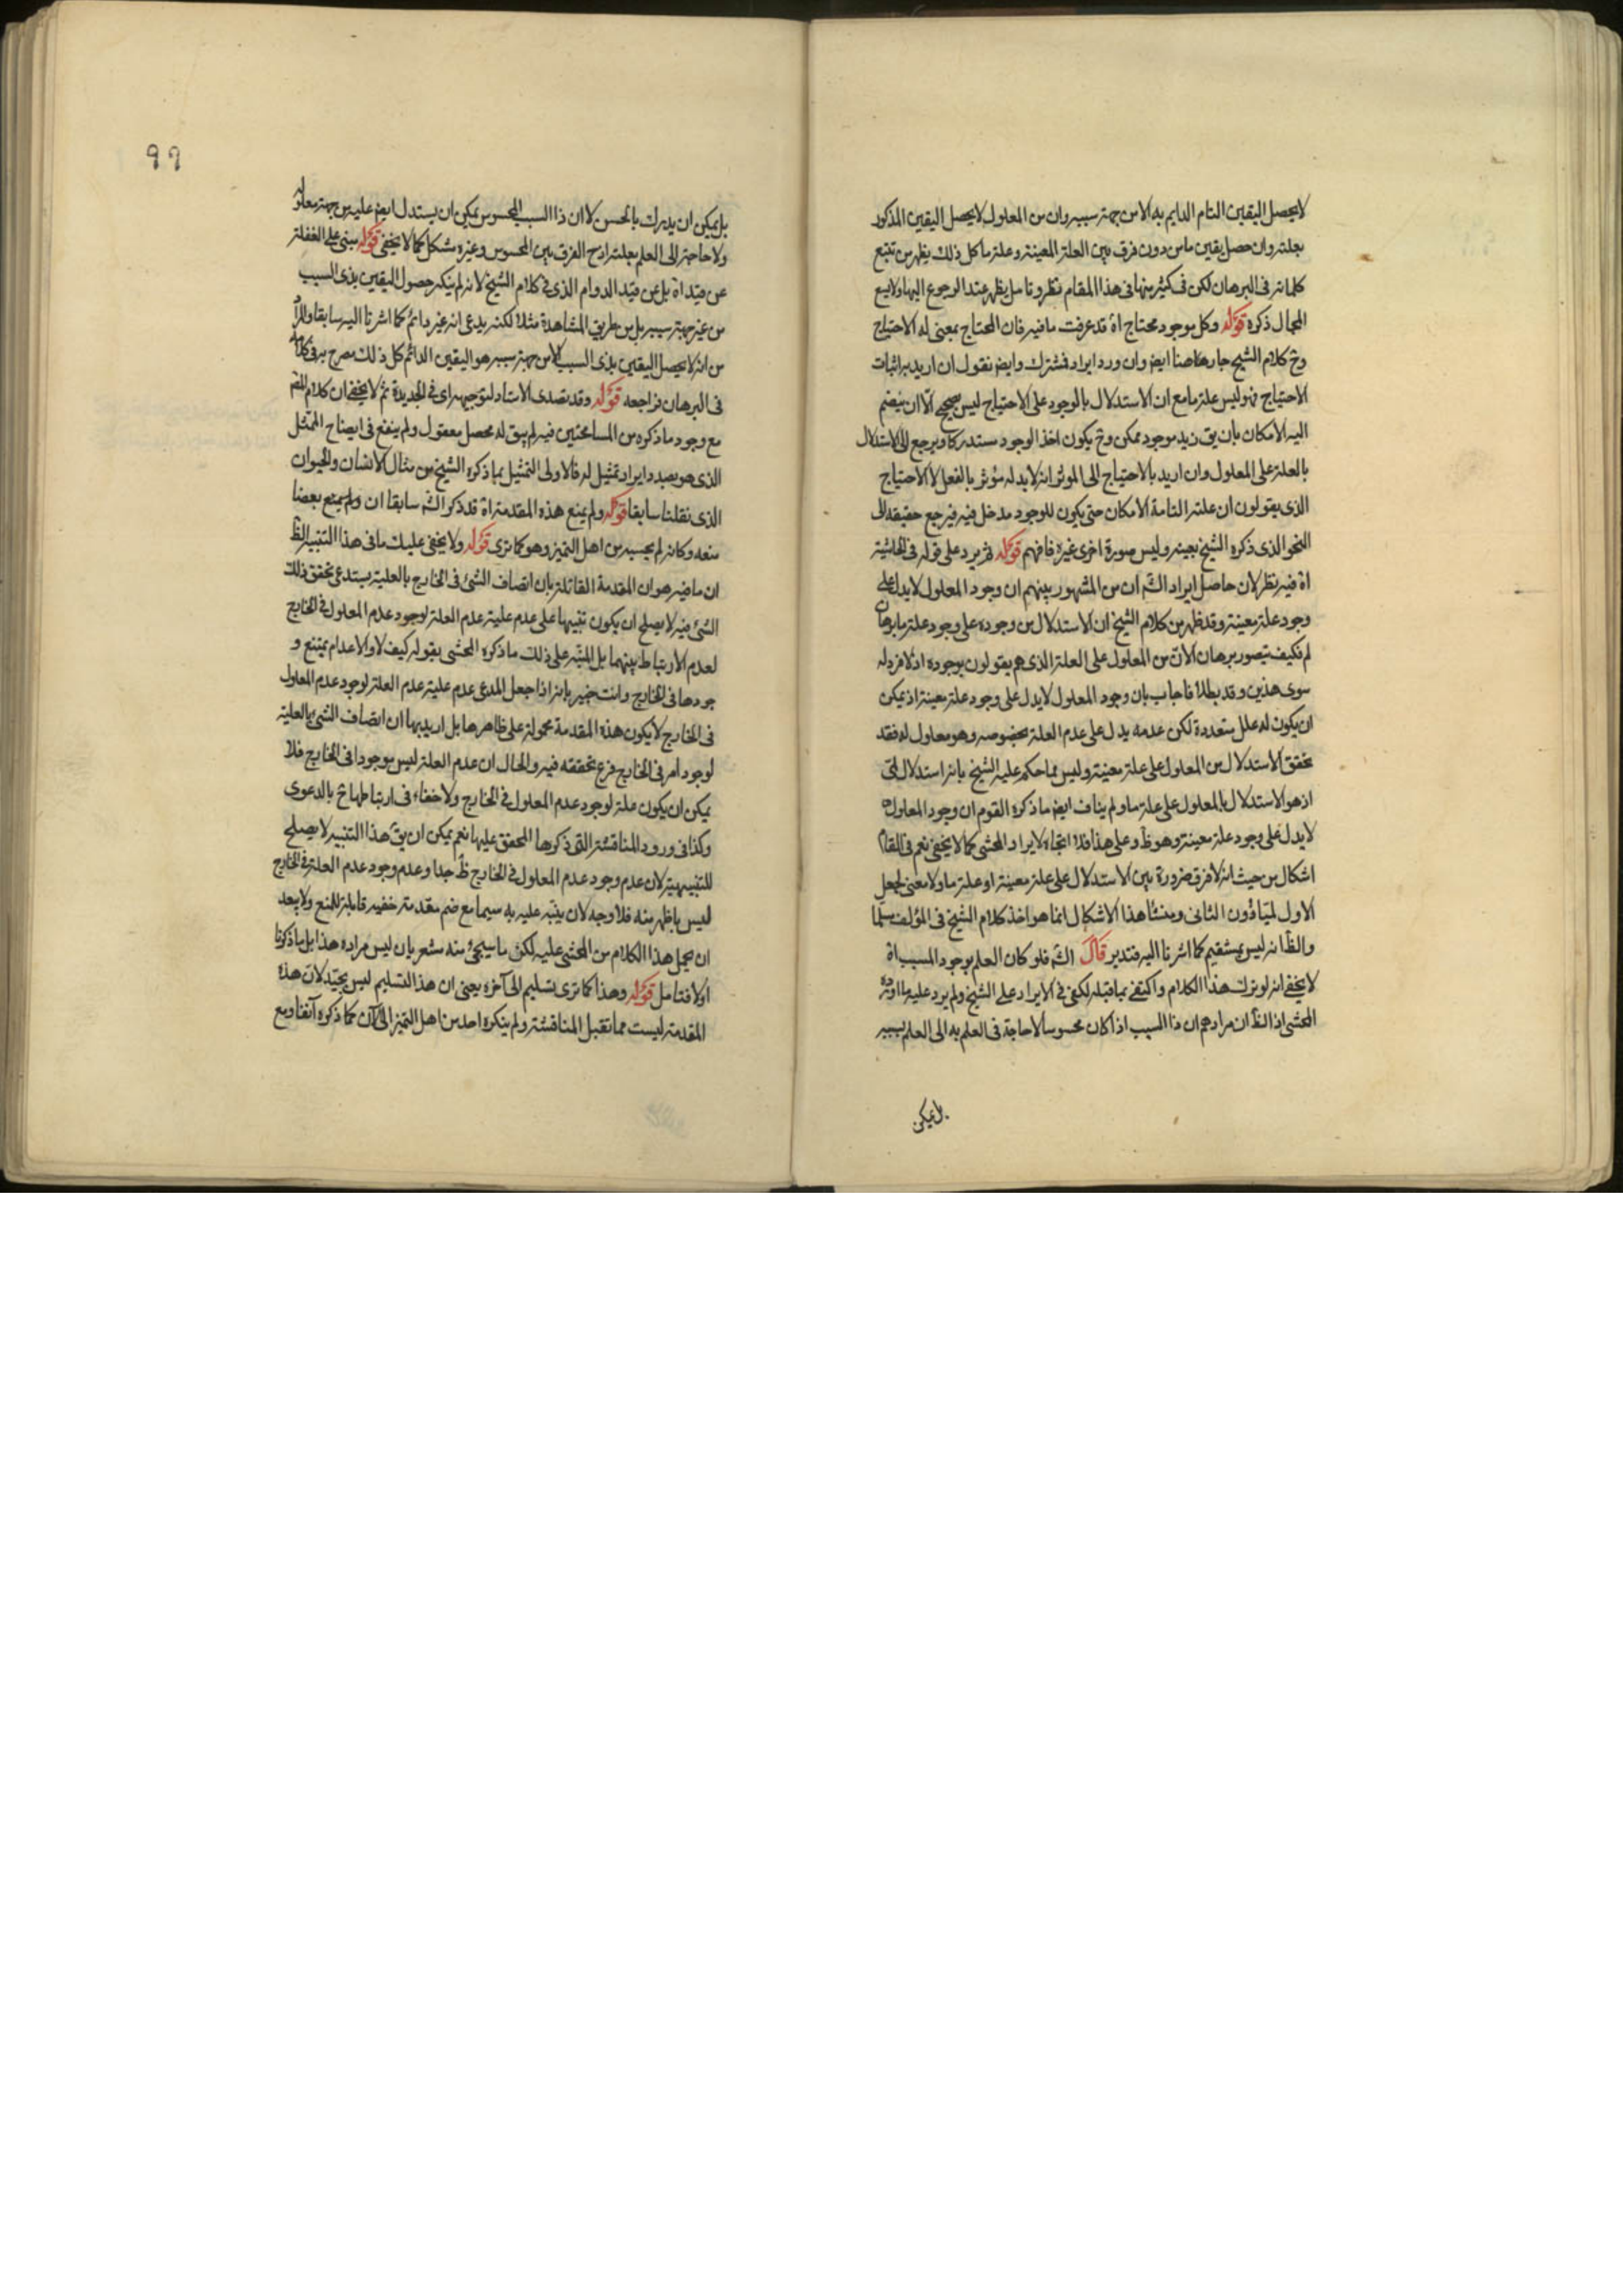 لا يحصل اليقين التام الدايم به الا من جهة سببه وان من المعلول لا يحصل اليقين المذكور
بعلته وان حصل يقين ما من دون فرق بين العلة المعينة وعلة ما كل ذلك يظهر من تتبع
كلماته فى البرهان لكن فى كثير منها فى هذا المقام نظر وتامل يظهر عند الرجوع اليها ولا يسع
المجال ذكره قوله وكل موجود محتاج اه قد عرفت ما فيه فان المحتاج بمعنى له الاحتياج
وح كلام الشيخ جار هاهنا ايض وان ورد ايراد فمشترك وايض نقول ان اريد به اثبات
الاحتياج فهو ليس علة ما مع ان الاستدلال بالوجود على الاحتياج ليس بصحيح الا ان ينضم
اليه الامكان بان يق زيد موجود ممكن وح يكون اخذ الوجود مستدركا ويرجع الى الاستدلال
بالعلة على المعلول وان اريد بالاحتياج الى الموثر انه لا بد له مؤثر بالفعل لا الاحتياج
الذى يقولون ان علته التامة الامكان حتى يكون للوجود مدخل فيه فيرجع حقيقة الى
النحو الذى ذكره الشيخ بعينه وليس صورة اخرى غيره فافهم قوله ثم يرد على قوله فى الحاشية
اه فيه نظر لان حاصل ايراد الش ان من المشهور بينهم ان وجود المعلول لا يدل على
وجود علة معينة وقد ظهر من كلام الشيخ ان الاستدلال من وجوده على وجود علة ما برهان
لم فكيف يتصور برهان الان من المعلول على العلة الذى هم يقولون بوجوده اذ لا فرد له
سوى هذين وقد بطلا فاجاب بان وجود المعلول لا يدل على وجود علة معينة اذ يمكن
ان يكون له علل متعددة لكن عدمه يدل على عدم العلة بخصوصه وهو معلول له فقد
تحقق الاستدلال من المعلول على علة معينة وليس مما حكم عليه الشيخ بانه استدلال لمى
اذ هو الاستدلال بالمعلول على علة ما ولم يناف ايض ما ذكره القوم ان وجود المعلول
لا يدل على وجود علة معينة وهو ظ وعلى هذا فلا اتجاه لايراد المحشى كما لا يخفى نعم فى المقام
اشكال من حيث انه لا فرق ضرورة بين الاستدلال على علة معينة او علة ما ولا معنى لجعل
الاول لميا دون الثانى ومنشا هذا الاشكال انما هو اخذ كلام الشيخ فى المؤلف مسلما
والظ انه ليس بمستقيم كما اشرنا اليه فتدبر قال الش فلو كان العلم بوجود المسبب اه
لا يخفى انه لو ترك هذا الكلام واكتفى بما قبله لكفى فى الايراد على الشيخ ولم يرد عليه ما اورده
المحشى اذ الظ ان مرادهم ان ذا السبب اذا كان محسوسا لا حاجة فى العلم به الى العلم بسببه
بل يمكن
٩٩
بل يمكن ان يدرك بالحس لا ان ذا السبب المحسوس يمكن ان يستدل ايض عليه من جهة معلوله
ولا حاجة الى العلم بعلته اذ ح الفرق بين المحسوس وغيره مشكل كما لا يخفى قوله مبنى على الغفلة
عن قيد اه بل عن قيد الدوام الذى فى كلام الشيخ لانه لم ينكر حصول اليقين بذى السبب
من غير جهة سببه بل من طريق المشاهدة مثلا لكنه يدعى انه غير دائم كما اشرنا اليه سابقا والمراد
من انه لا يحصل اليقين بذى السبب الا من جهة سببه هو اليقين الدائم كل ذلك مصرح به فى كلامه
فى البرهان فراجعه قوله وقد تصدى الاستاد لتوجيهه اى فى الجديدة ثم لا يخفى ان كلام المص
مع وجود ما ذكره من المسامحتين فيه لم يبق له محصل معقول ولم ينفع فى ايضاح الممثل
الذى هو بصدد ايراد تمثيل له فالاولى التمثيل بما ذكره الشيخ من مثال الانسان والحيوان
الذى نقلنا سابقا قوله ولم يمنع هذه المقدمة اه قد ذكر الش سابقا ان ولم يمنع بعضا
منعه وكانه لم يحسبه من اهل التميز وهو كما ترى قوله ولا يخفى عليك ما فى هذا التنبيه الظ
ان ما فيه هو ان المقدمة القائلة بان اتصاف الشئ فى الخارج بالعلية يستدعى تحقق ذلك
الشئ فيه لا يصلح ان يكون تنبيها على عدم علية عدم العلة لوجود عدم المعلول فى الخارج
لعدم الارتباط بينهما بل المنبه على ذلك ما ذكره المحشى بقوله كيف لا والاعدام يمتنع و
جودها فى الخارج وانت خبير بانه اذا جعل المدعى عدم علية عدم العلة لوجود عدم المعلول
فى الخارج لا يكون هذه المقدمة محمولة على ظاهرها بل اريد بها ان اتصاف الشئ بالعلية
لوجود امر فى الخارج فرع تحققه فيه والحال ان عدم العلة ليس موجودا فى الخارج فلا
يمكن ان يكون علة لوجود عدم المعلول فى الخارج ولا خفاء فى ارتباطها ح بالدعوى
وكذا فى ورود المناقشة التى ذكرها المحقق عليها نعم يمكن ان يق هذا التنبيه لا يصلح
للتنبيهية لان عدم وجود عدم المعلول فى الخارج ظ جدا وعدم وجود عدم العلة فى الخارج
ليس باظهر منه فلا وجه لان ينبه عليه به سيما مع ضم مقدمة خفية قابلة للمنع ولا يبعد
ان يحمل هذا الكلام من المحشى عليه لكن ما سيجئ منه مشعر بان ليس مراده هذا بل ما ذكرنا
اولا فتامل قوله وهذا كما ترى تسليم الى آخره يعنى ان هذا التسليم ليس بجيد لان هذه
المقدمة ليست مما تقبل المناقشة ولم ينكره احد من اهل التميز الى الآن كما ذكره آنفا ومع